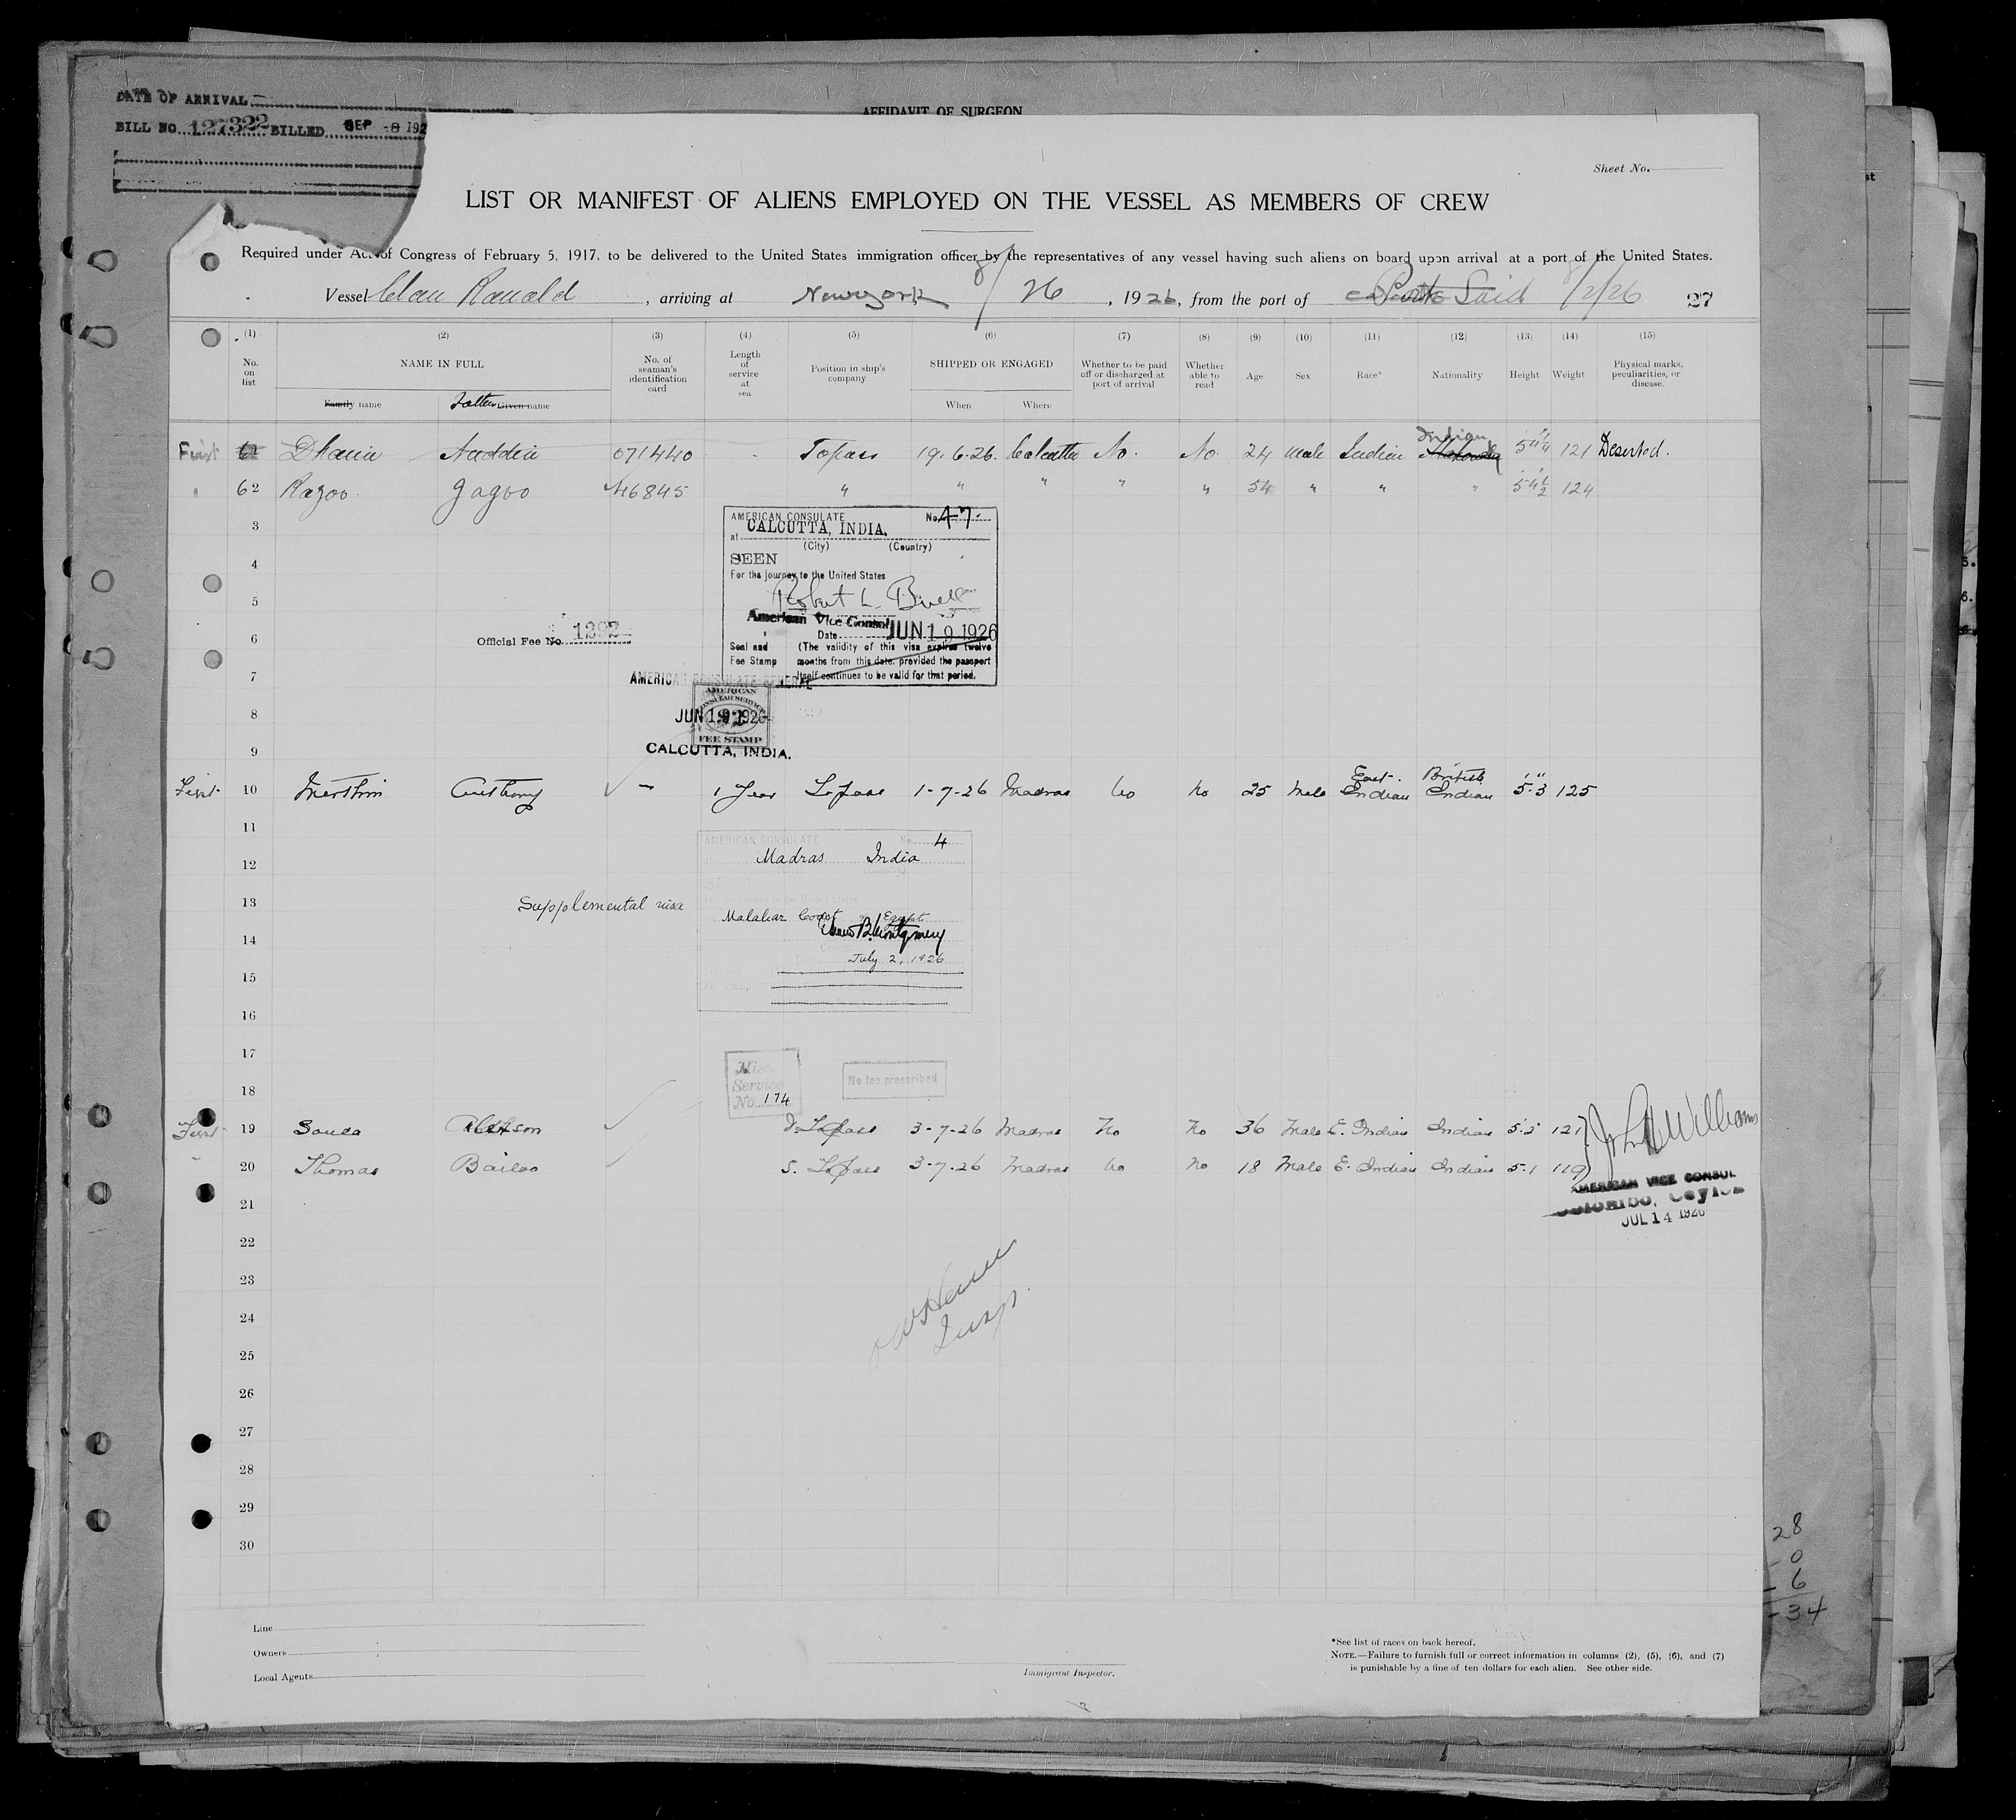 DATE OF ARRIVAL
BILL NO. 127322 BILLED SEP -8 192
AFFIDAVIT OF SURGEON
Sheet No.
LIST OR MANIFEST OF ALIENS EMPLOYED ON THE VESSEL AS MEMBERS OF CREW
Required under Act of Congress of February 5, 1917, to be delivered to the United States immigration officer by the representatives of any vessel having such aliens on board upon arrival at a port of the United States.
Vessel Clan Ranald, arriving at New York 8/26, 1926, from the port of Port Said 8/2/26 27
(1) (2) (3) (4) (5) (6) (7) (8) (9) (10) (11) (12) (13) (14) (15)
No. on list
NAME IN FULL
Family name Given name
No. of seaman's identification card
Length of service at sea
Position in ship's company
SHIPPED OR ENGAGED
When Where
Whether to be paid off or discharged at port of arrival
Whether able to read
Age
Sex
Race*
Nationality
Height
Weight
Physical marks, peculiarities, or disease.
First 61 071440 - Topass 19.6.26. Calcutta No. No 24 male Indian Indian 5 4 1/4 121 Deserted.
" 62 Ragoo Jagoo 46845 " " " " " 54 " " " 5 4 1/2 124
3
AMERICAN CONSULATE No. 47.
at CALCUTTA, INDIA.
(City) (Country)
4
SEEN
For the journey to the United States
5
Robert L. Buell
American Vice Consul
Date JUN 19 1926
6
Official Fee No. 1292
Seal and Fee Stamp
(The validity of this visa expires twelve months from this date, provided the passport itself continues to be valid for that period.
7
AMERICAN CONSULATE GENERAL
AMERICAN CONSULAR SERVICE
8
JUN 19 1926
$2
FEE STAMP
9
CALCUTTA, INDIA.
First 10 Anthony - 1 Year Topass 1-7-26 Madras No No 25 Male East Indian British Indian 5'3" 125
11
AMERICAN CONSULATE No. 4
12
Madras India
13
Supplemental visa
Malabar Coast Egypt
14
James B. Montgomery
July 2, 1926
15
16
17
18
Misc. Service No. 174
No fee prescribed
First 19 Souza Topass 3-7-26 Madras No No 36 Male E. Indian Indian 5.5 121
" 20 Thomas S. Topass 3-7-26 Madras No No 18 Male E. Indian Indian 5.1 119
Williams
AMERICAN VICE CONSUL
Colombo, Ceylon
JUL 14 1926
21
22
23
24
Insp.
25
26
27
28
29
30
28
0
6
34
Line
Owners
Local Agents
Immigrant Inspector.
*See list of races on back hereof.
NOTE.—Failure to furnish full or correct information in columns (2), (5), (6), and (7)
is punishable by a fine of ten dollars for each alien. See other side.